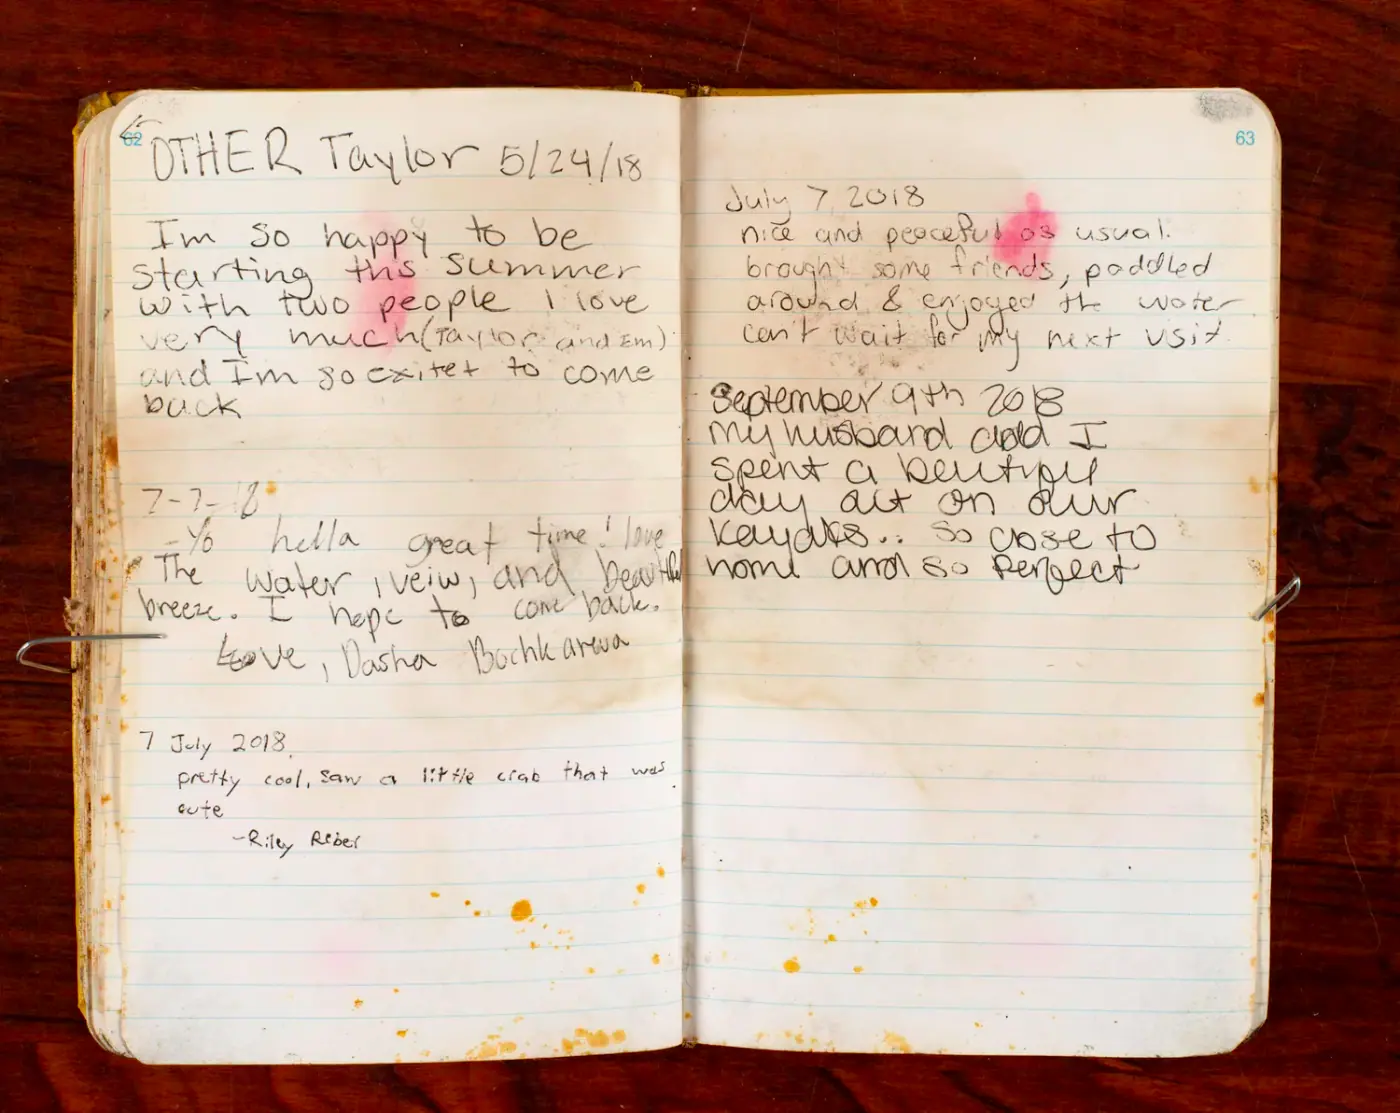 62
OTHER Taylor 5/24/18
Im so happy to be
starting this summer
with two people I love
very much (Taylor and Em)
and Im so exitet to come
back
7-7-18
-Yo hella great time! love
The water, veiw, and beautiful
breeze. I hope to come back.
Love, Dasha Bochkareva
7 July 2018.
pretty cool, saw a little crab that was
cute
-Riley Reber
63
July 7, 2018
nice and peaceful as usual.
brought some friends, paddled
around & enjoyed the water
can't wait for my next visit.
September 9th 2018
my husband and I
spent a beutiful
day out on our
kayaks.. so close to
home and so perfect